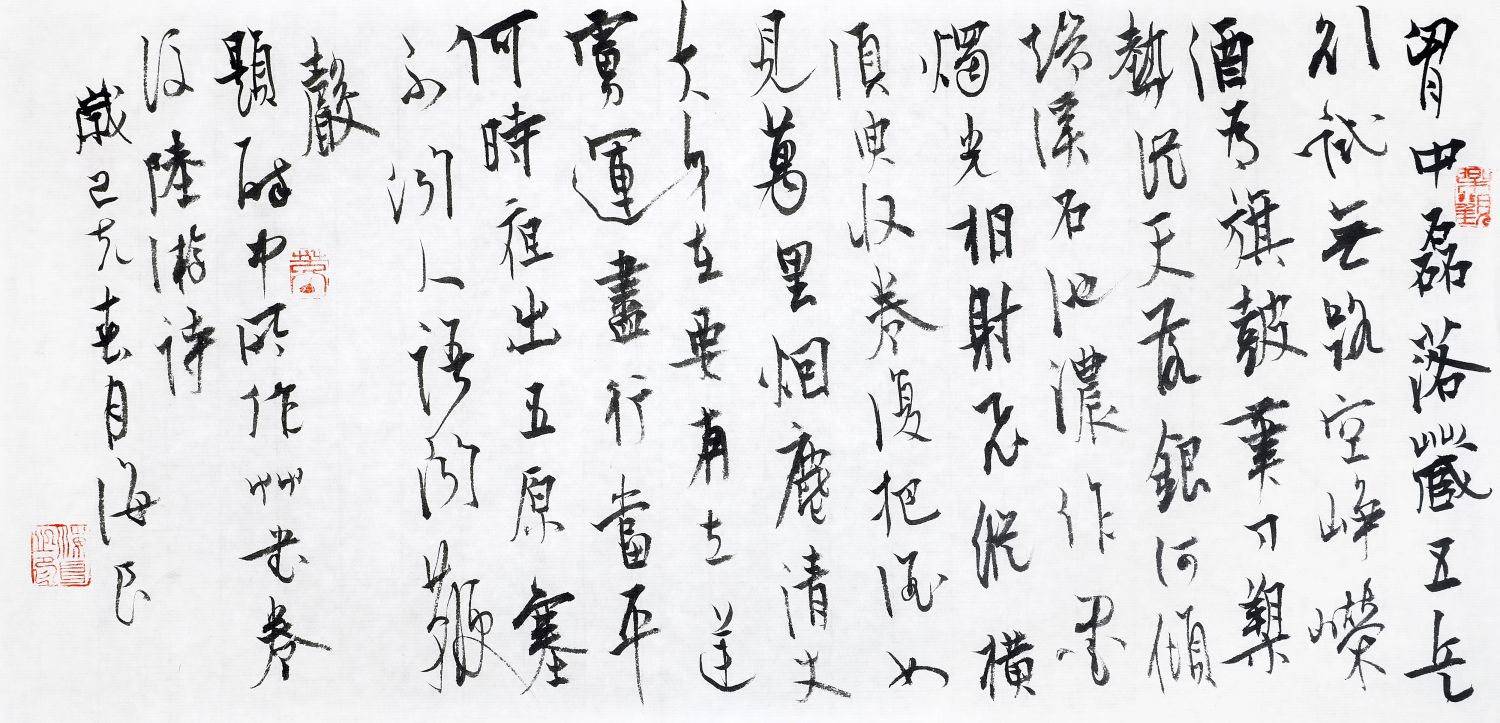 胷中磊落藏五兵
欲試無路空崢嶸
酒為旗鼓筆刀槊
勢從天落銀河傾
端溪石池濃作墨
燭光相射飛縱橫
須臾收卷復把酒如
見萬里烟塵清丈
夫身在要有立逆
虜運盡行當平
何時夜出五原塞
不聞人語聞鞭
聲
題醉中所作艸書卷
後陸游詩
歲己亥春月海良